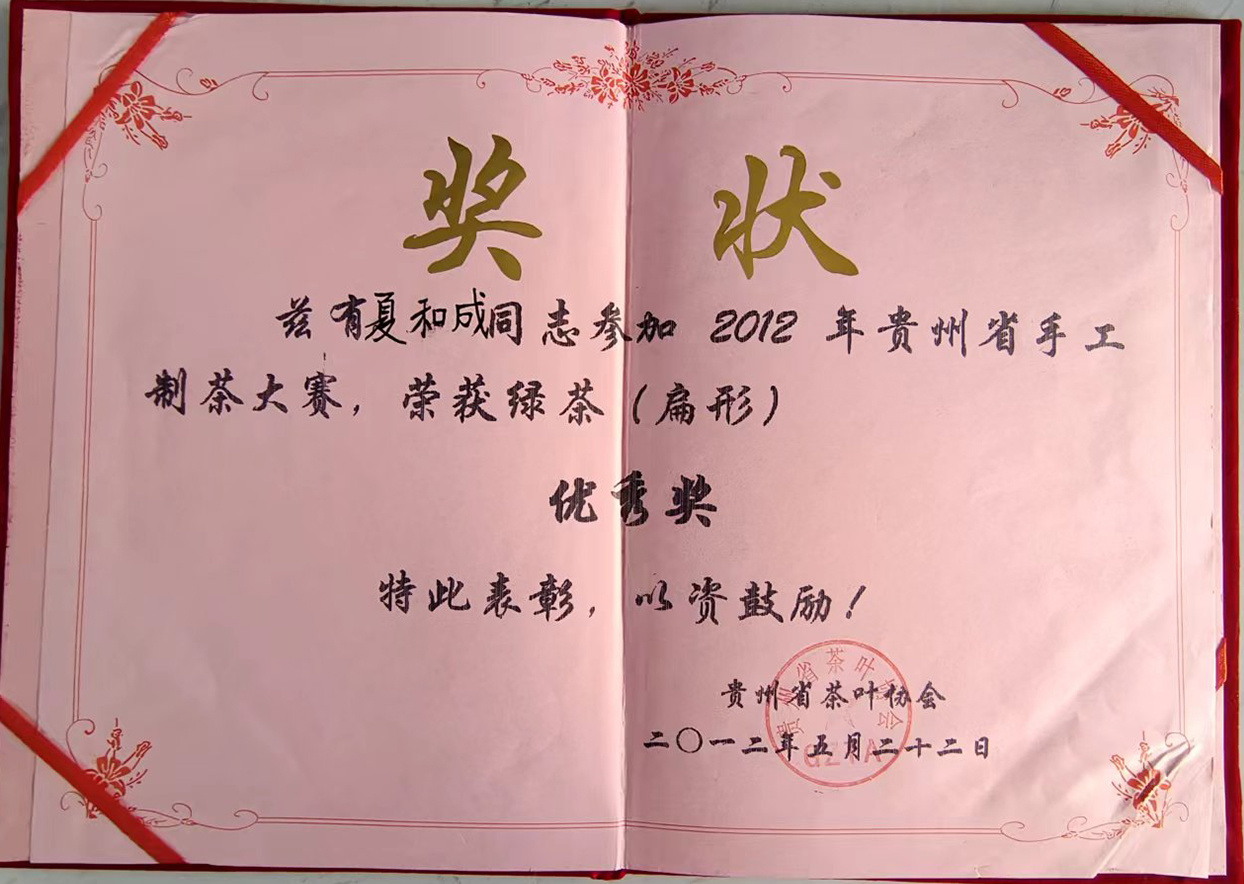 奖 状
兹有夏和成同志参加 2012 年贵州省手工
制茶大赛，荣获绿茶（扁形）
优秀奖
特此表彰，以资鼓励！
贵州省茶叶协会
二〇一二年五月二十二日
贵州省茶叶协会
GZTA